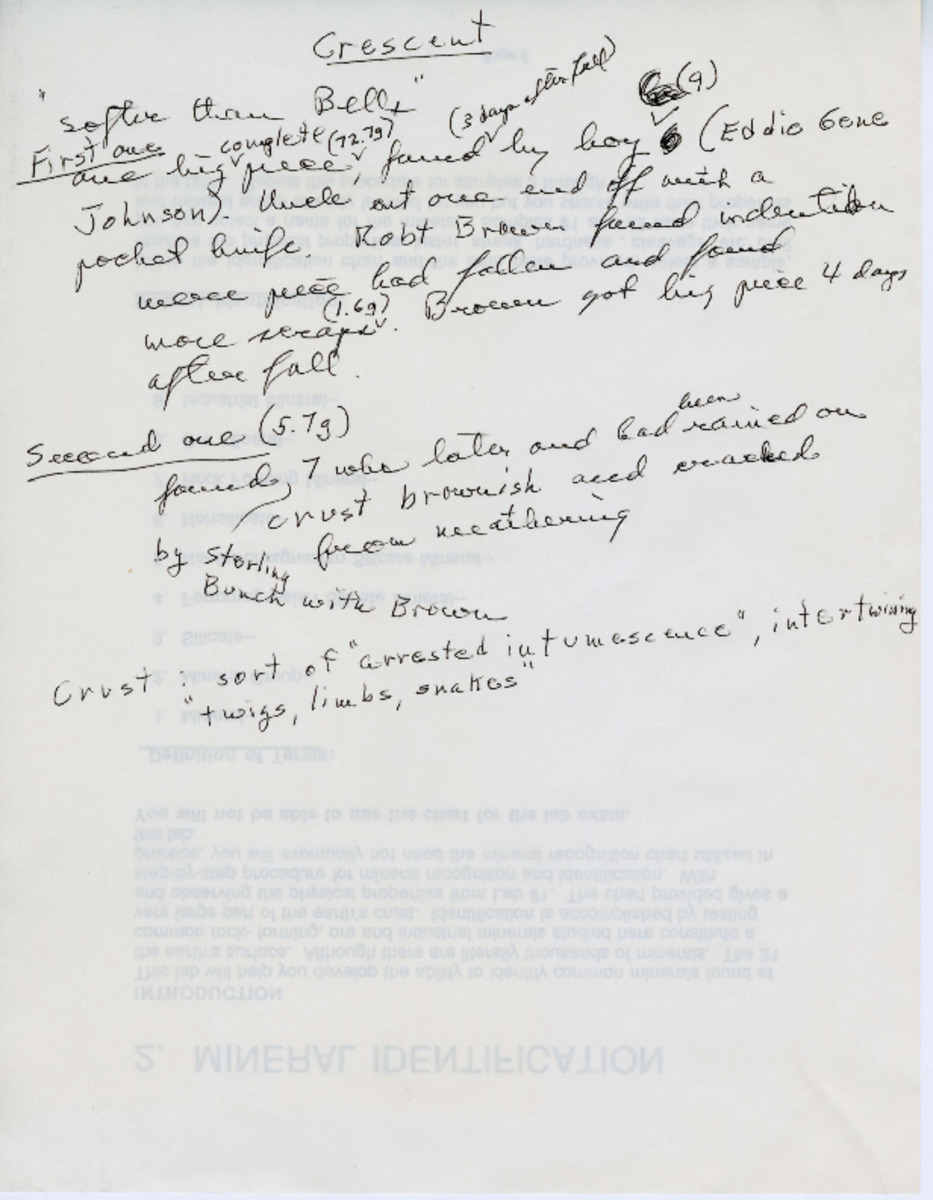 Crescent
"softer than Bells"
First one complete (72.7g) (3 days after fall) (9)
one big piece, found by boy 6 (Eddie Gene
Johnson). Uncle cut one end off with a
pocket knife. Robt Brown found indention
where piece had fallen and found
more scraps (1.6g). Brown got big piece 4 days
after fall.
Second one (5.7g)
found 7 wks later and had been rained on
crust brownish and cracked
by Sterling from weathering
Bunch with Brown
Crust: sort of "arrested intumescence", intertwining
"twigs, limbs, snakes"
Definition of Terms:
You will not be able to use the chart for the lab exam.
this lab.
practice, you will eventually not need the mineral recognition chart utilized in
step-by-step procedure for mineral recognition and identification. With
and observing the physical properties from Lab #1. The chart provided gives a
very large part of the earth's crust. Identification is accomplished by testing
common rock- forming, ore and industrial minerals studied here constitute a
the earth's surface. Although there are literally thousands of minerals. The 21
This lab will help you develop the ability to identify common minerals found at
INTRODUCTION
2. MINERAL IDENTIFICATION